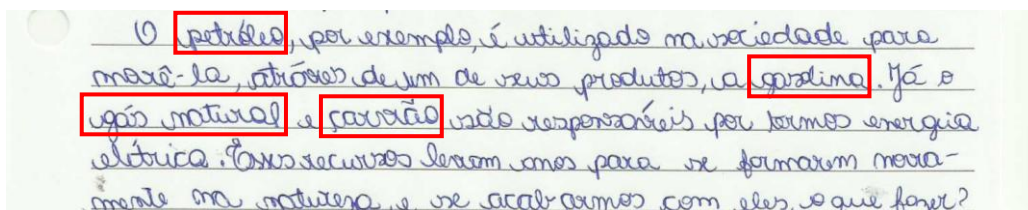 O petróleo, por exemplo, é utilizado na sociedade para
movê-la, atráves de um de seus produtos, a gasolina. Já o
gás natural e carvão são responsáveis por termos energia
elétrica. Esses recursos levam anos para se formarem nova-
mente na natureza e se acabarmos com eles, o que fazer?